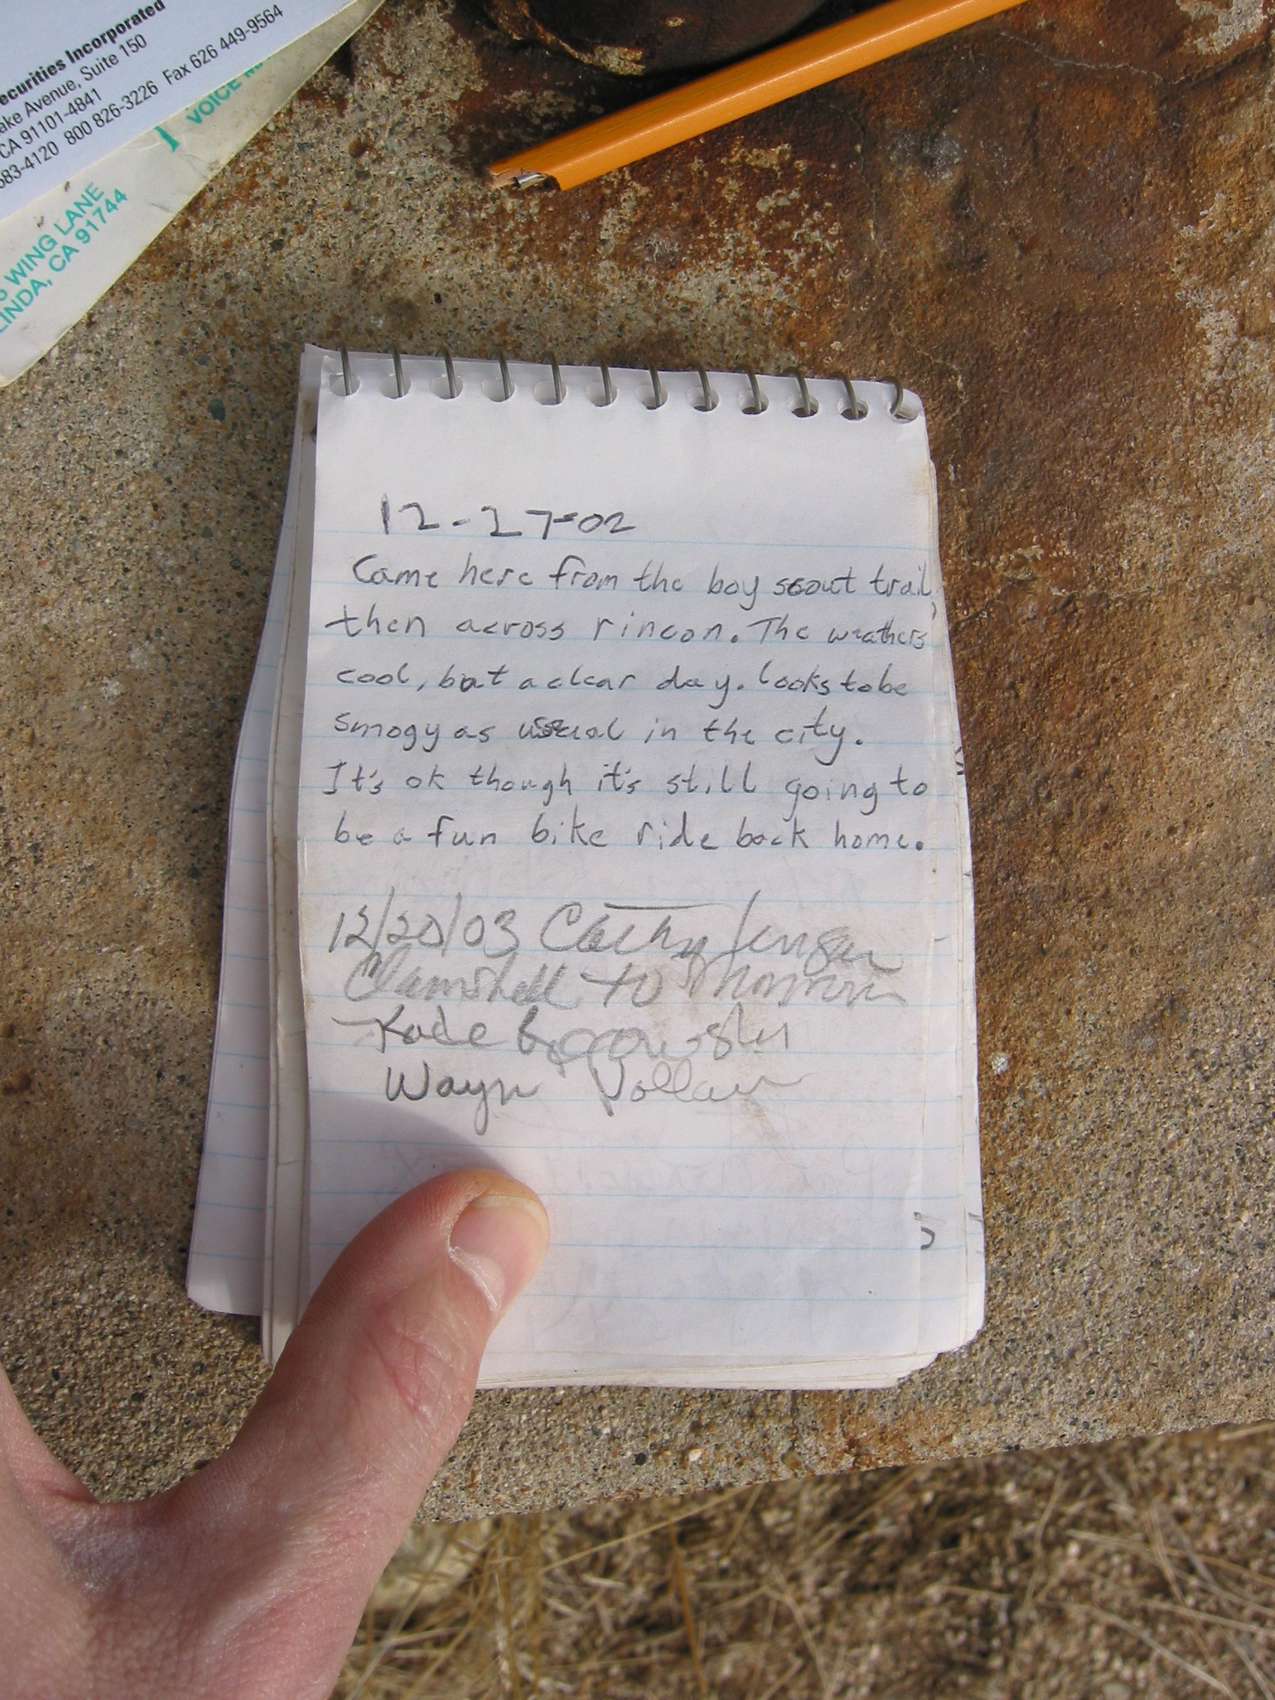 ecurities Incorporated
ake Avenue, Suite 150
CA 91101-4841
583-4120 800 826-3226 Fax 626 449-9564
VOICE
WING LANE
LINDA, CA 91744
12-27-02
Came here from the boy scout trail,
then across rincon. The weathers
cool, but a clear day. looks to be
smogy as usual in the city.
It's ok though it's still going to
be a fun bike ride back home.
12/20/03 Cathy
Clamshell to
Kade
Wayn